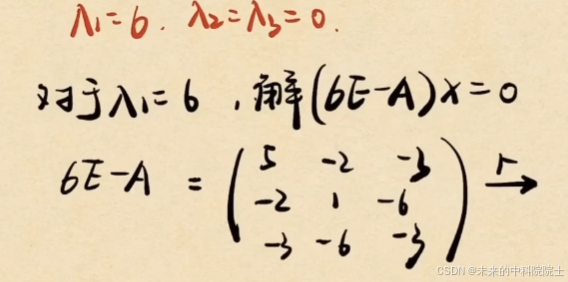 λ₁=6. λ₂=λ₃=0.
对于λ₁=6，解(6E-A)x=0
6E-A = ( 5 -2 -3
-2 1 -6
-3 -6 -3 ) r→
CSDN @未来的中科院院士